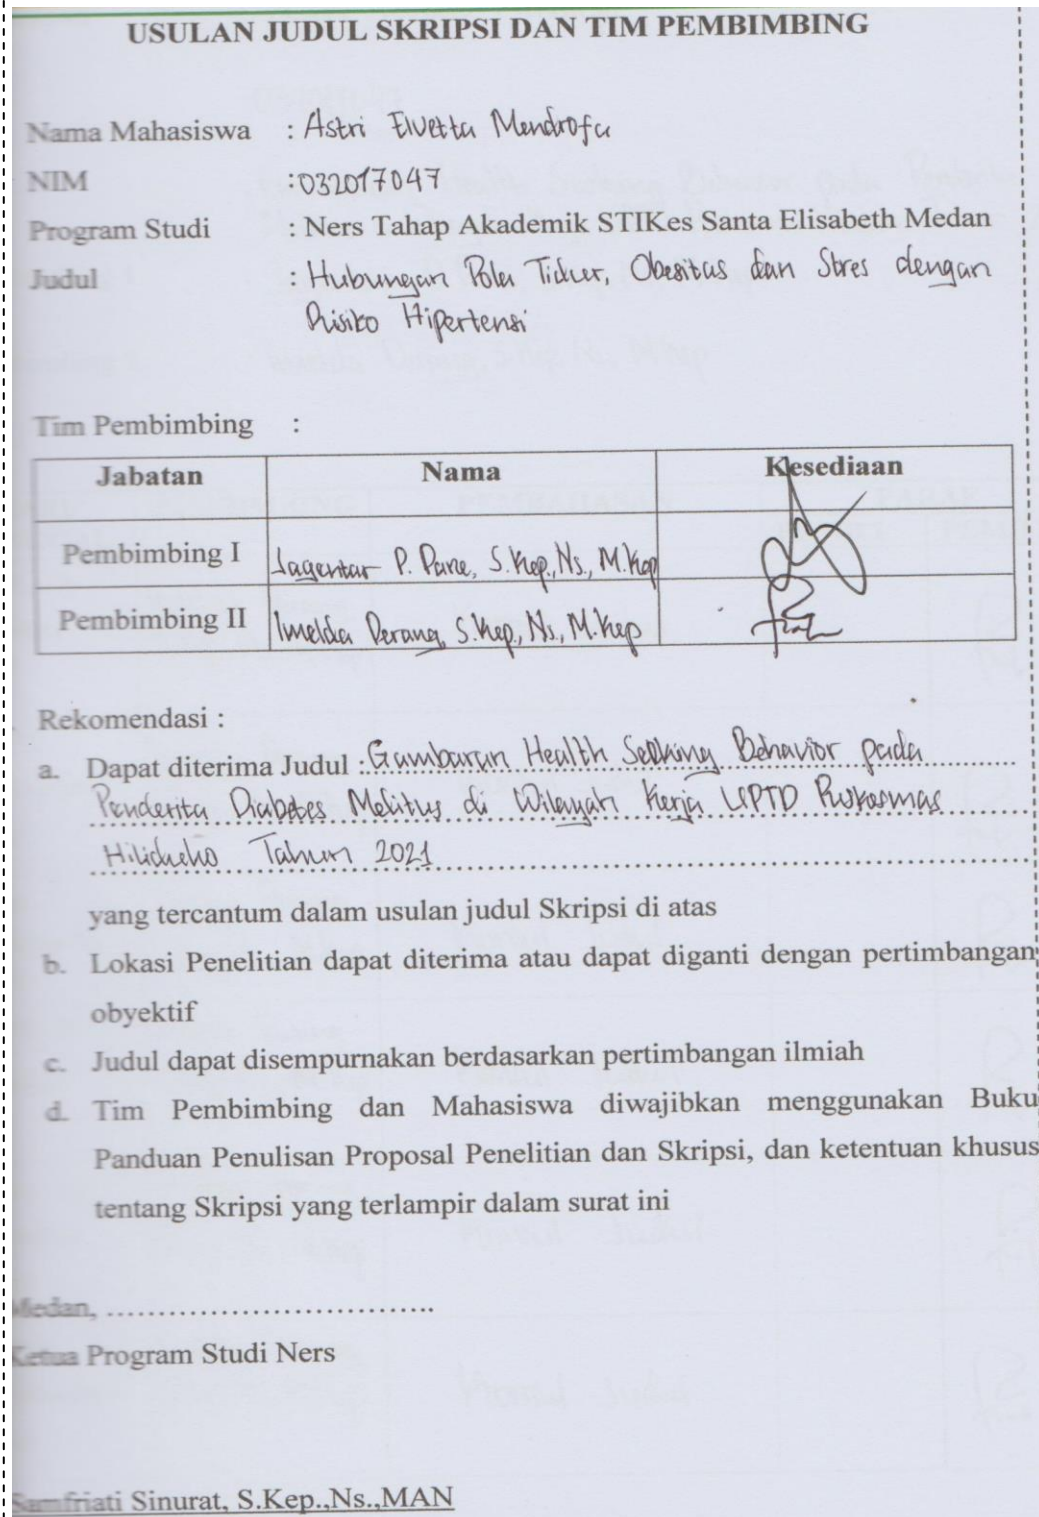 USULAN JUDUL SKRIPSI DAN TIM PEMBIMBING
Nama Mahasiswa : Astri Elvetta Mendrofa
NIM :032017047
Program Studi : Ners Tahap Akademik STIKes Santa Elisabeth Medan
Judul : Hubungan Pola Tidur, Obesitas dan Stres dengan
Risiko Hipertensi
Tim Pembimbing :
Jabatan Nama Kesediaan
Pembimbing I Jagentar P. Pane, S.Kep.,Ns., M.Kep
Pembimbing II Imelda Derang, S.Kep., Ns., M.Kep
Rekomendasi :
a. Dapat diterima Judul : Gambaran Health Seeking Behavior pada
Penderita Diabetes Melitus di Wilayah Kerja UPTD Puskesmas
Tahun 2021
yang tercantum dalam usulan judul Skripsi di atas
b. Lokasi Penelitian dapat diterima atau dapat diganti dengan pertimbangan
obyektif
c. Judul dapat disempurnakan berdasarkan pertimbangan ilmiah
d. Tim Pembimbing dan Mahasiswa diwajibkan menggunakan Buku
Panduan Penulisan Proposal Penelitian dan Skripsi, dan ketentuan khusus
tentang Skripsi yang terlampir dalam surat ini
Medan, ................................
Ketua Program Studi Ners
Samfriati Sinurat, S.Kep.,Ns.,MAN